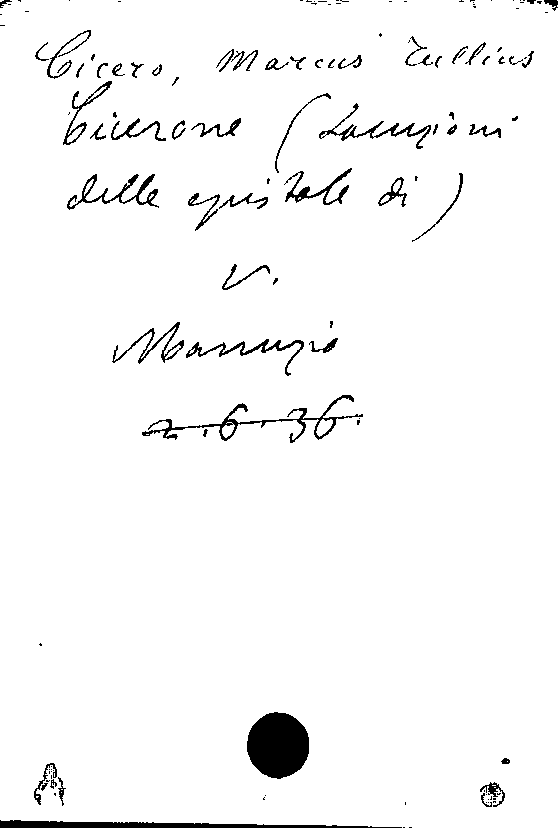 Cicero, Marcus Tullius
Cicerone (Locuzioni
delle epistole di)
V.
Manuzio
2.6.36.